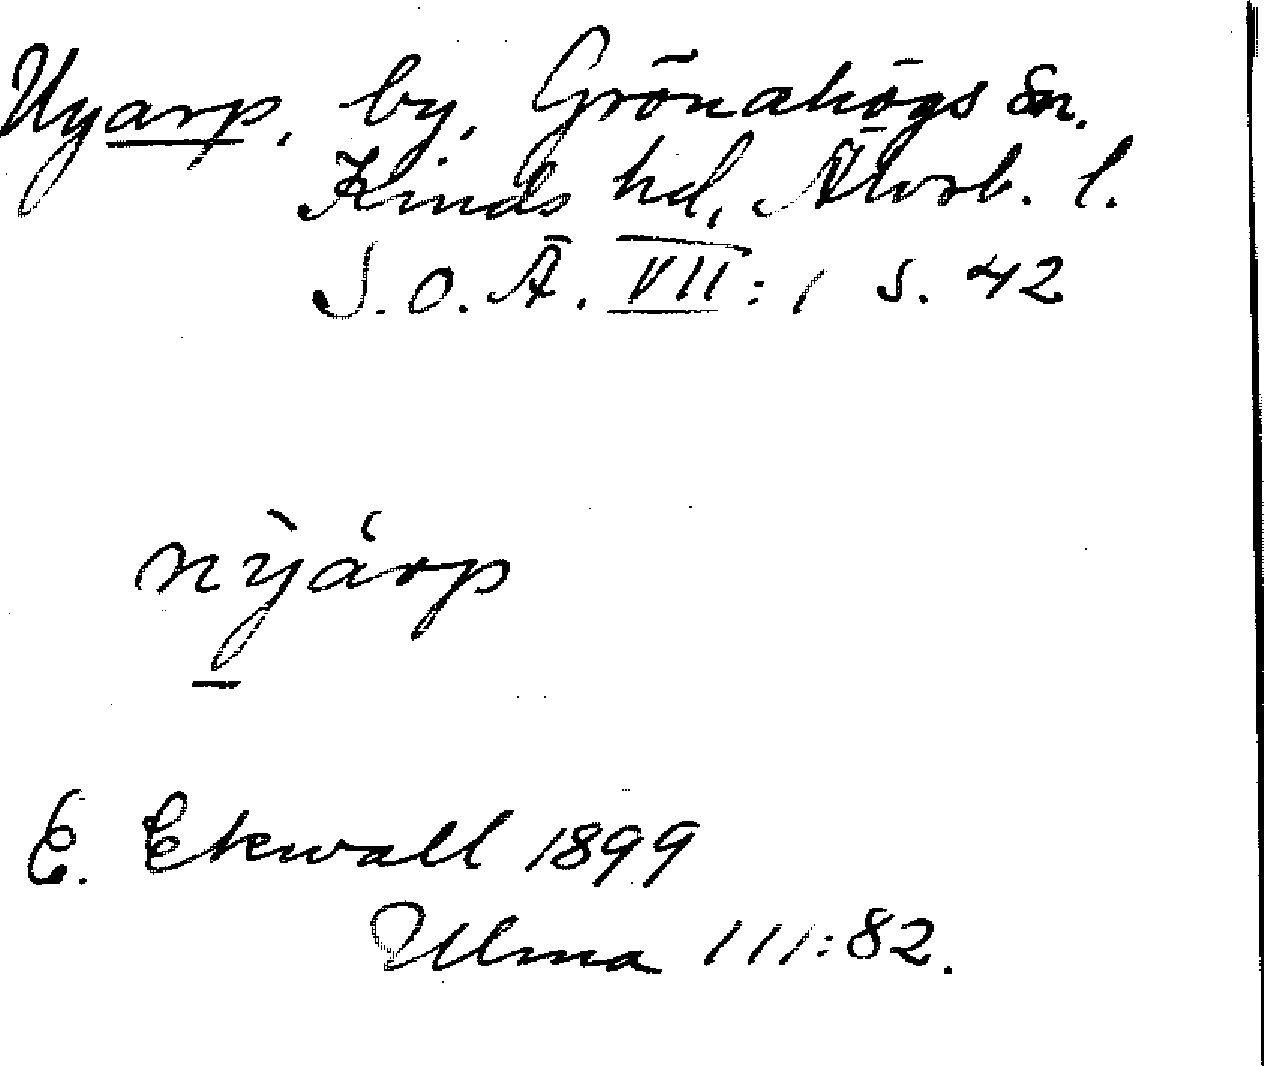 Nyarp, by, Grönahögs Sn.
Kinds hd, Älvsb. l.
S. O. Ä. VII: 1 s. 42
nỳ̠árp
E. Ekwall 1899
Ulma 111:82.